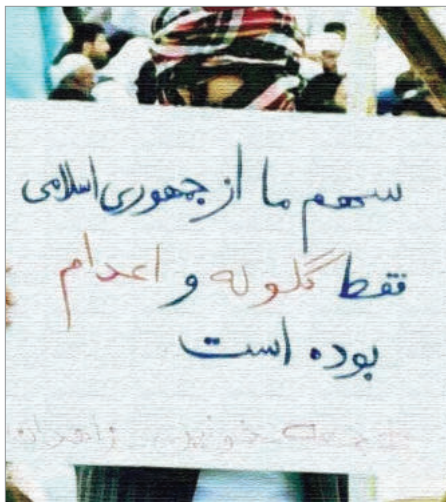 سهم ما از جمهوری اسلامی
فقط گلوله و اعدام
بوده است
جمعه خونین زاهدان